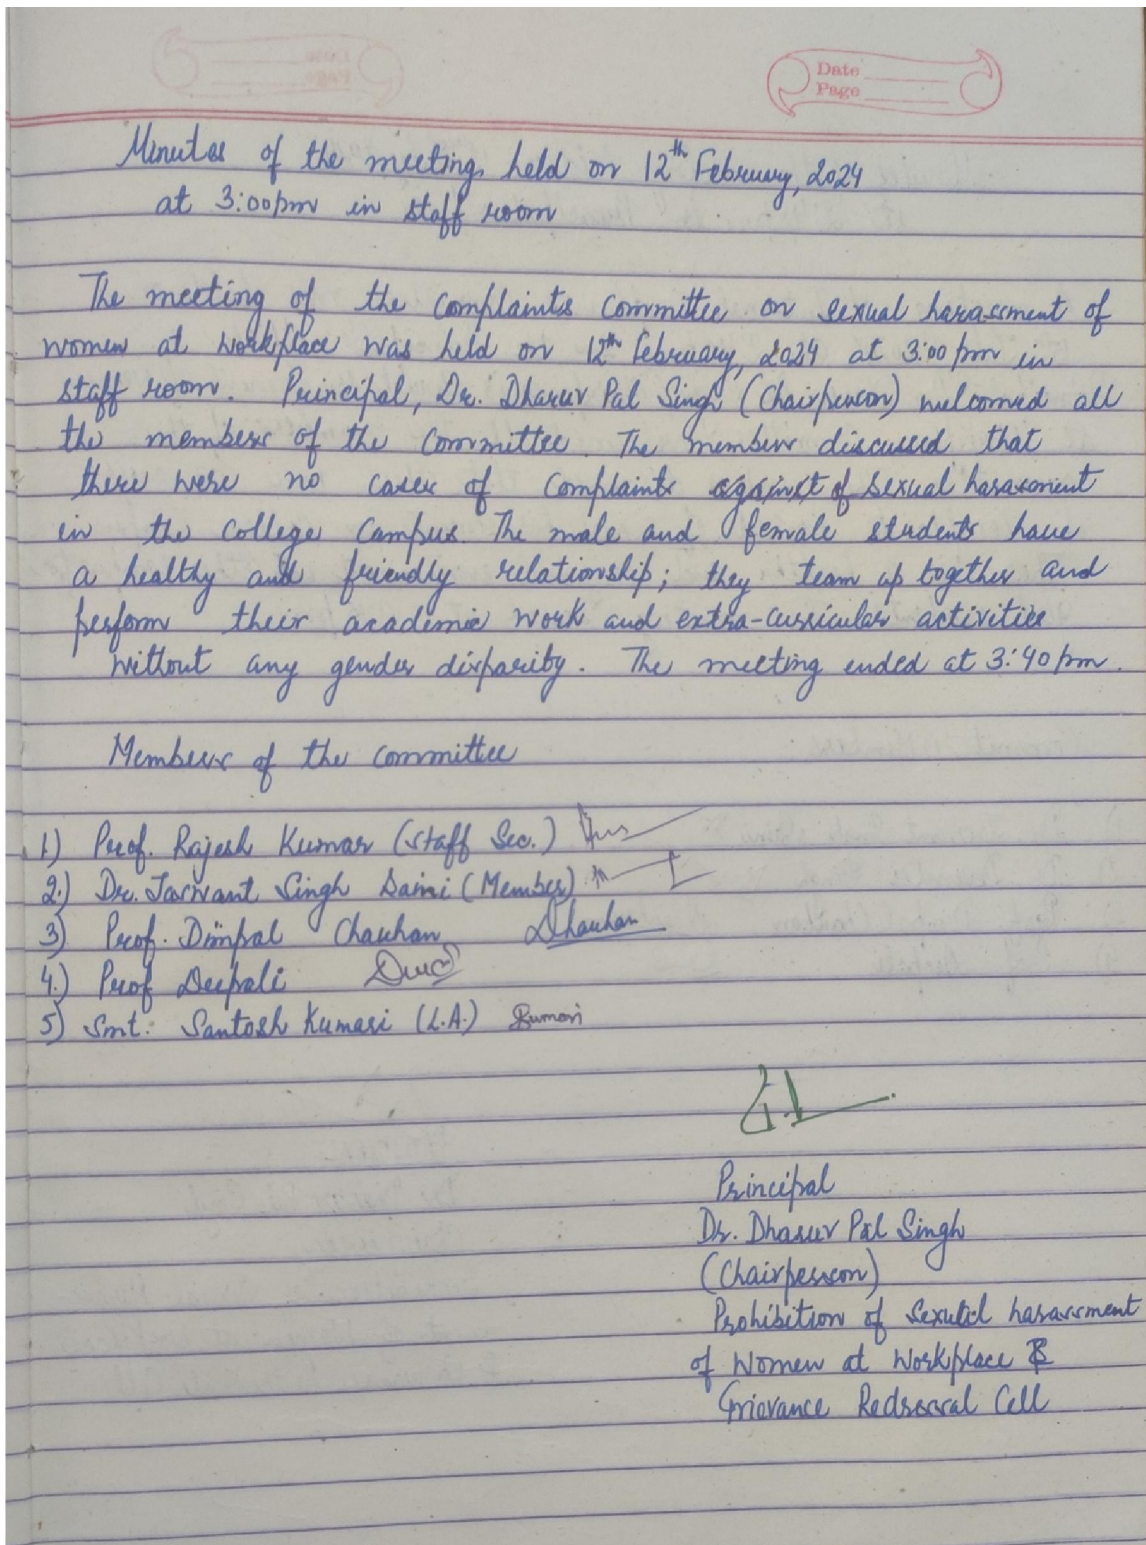 Date
Page
Minutes of the meeting held on 12th February, 2024
at 3:00pm in staff room
The meeting of the complaints committee on sexual harassment of
women at workplace was held on 12th February, 2024 at 3:00 pm in
staff room. Principal, Dr. Dharuv Pal Singh (Chairperson) welcomed all
the members of the committee. The members discussed that
there were no cases of complaints against of sexual harassment
in the college campus. The male and female students have
a healthy and friendly relationship; they team up together and
perform their academic work and extra-curricular activities
without any gender disparity. The meeting ended at 3:40 pm.
Members of the committee
1) Prof. Rajesh Kumar (Staff Sec.)
2.) Dr. Jaswant Singh Saini (Member)
3) Prof. Dimpal Chauhan Dhauhan
4.) Prof Deepali
5) Smt. Santosh Kumari (L.A.) Kumari
Principal
Dr. Dharuv Pal Singh
(Chairperson)
Prohibition of Sexual harassment
of Women at Workplace &
Grievance Redressal Cell